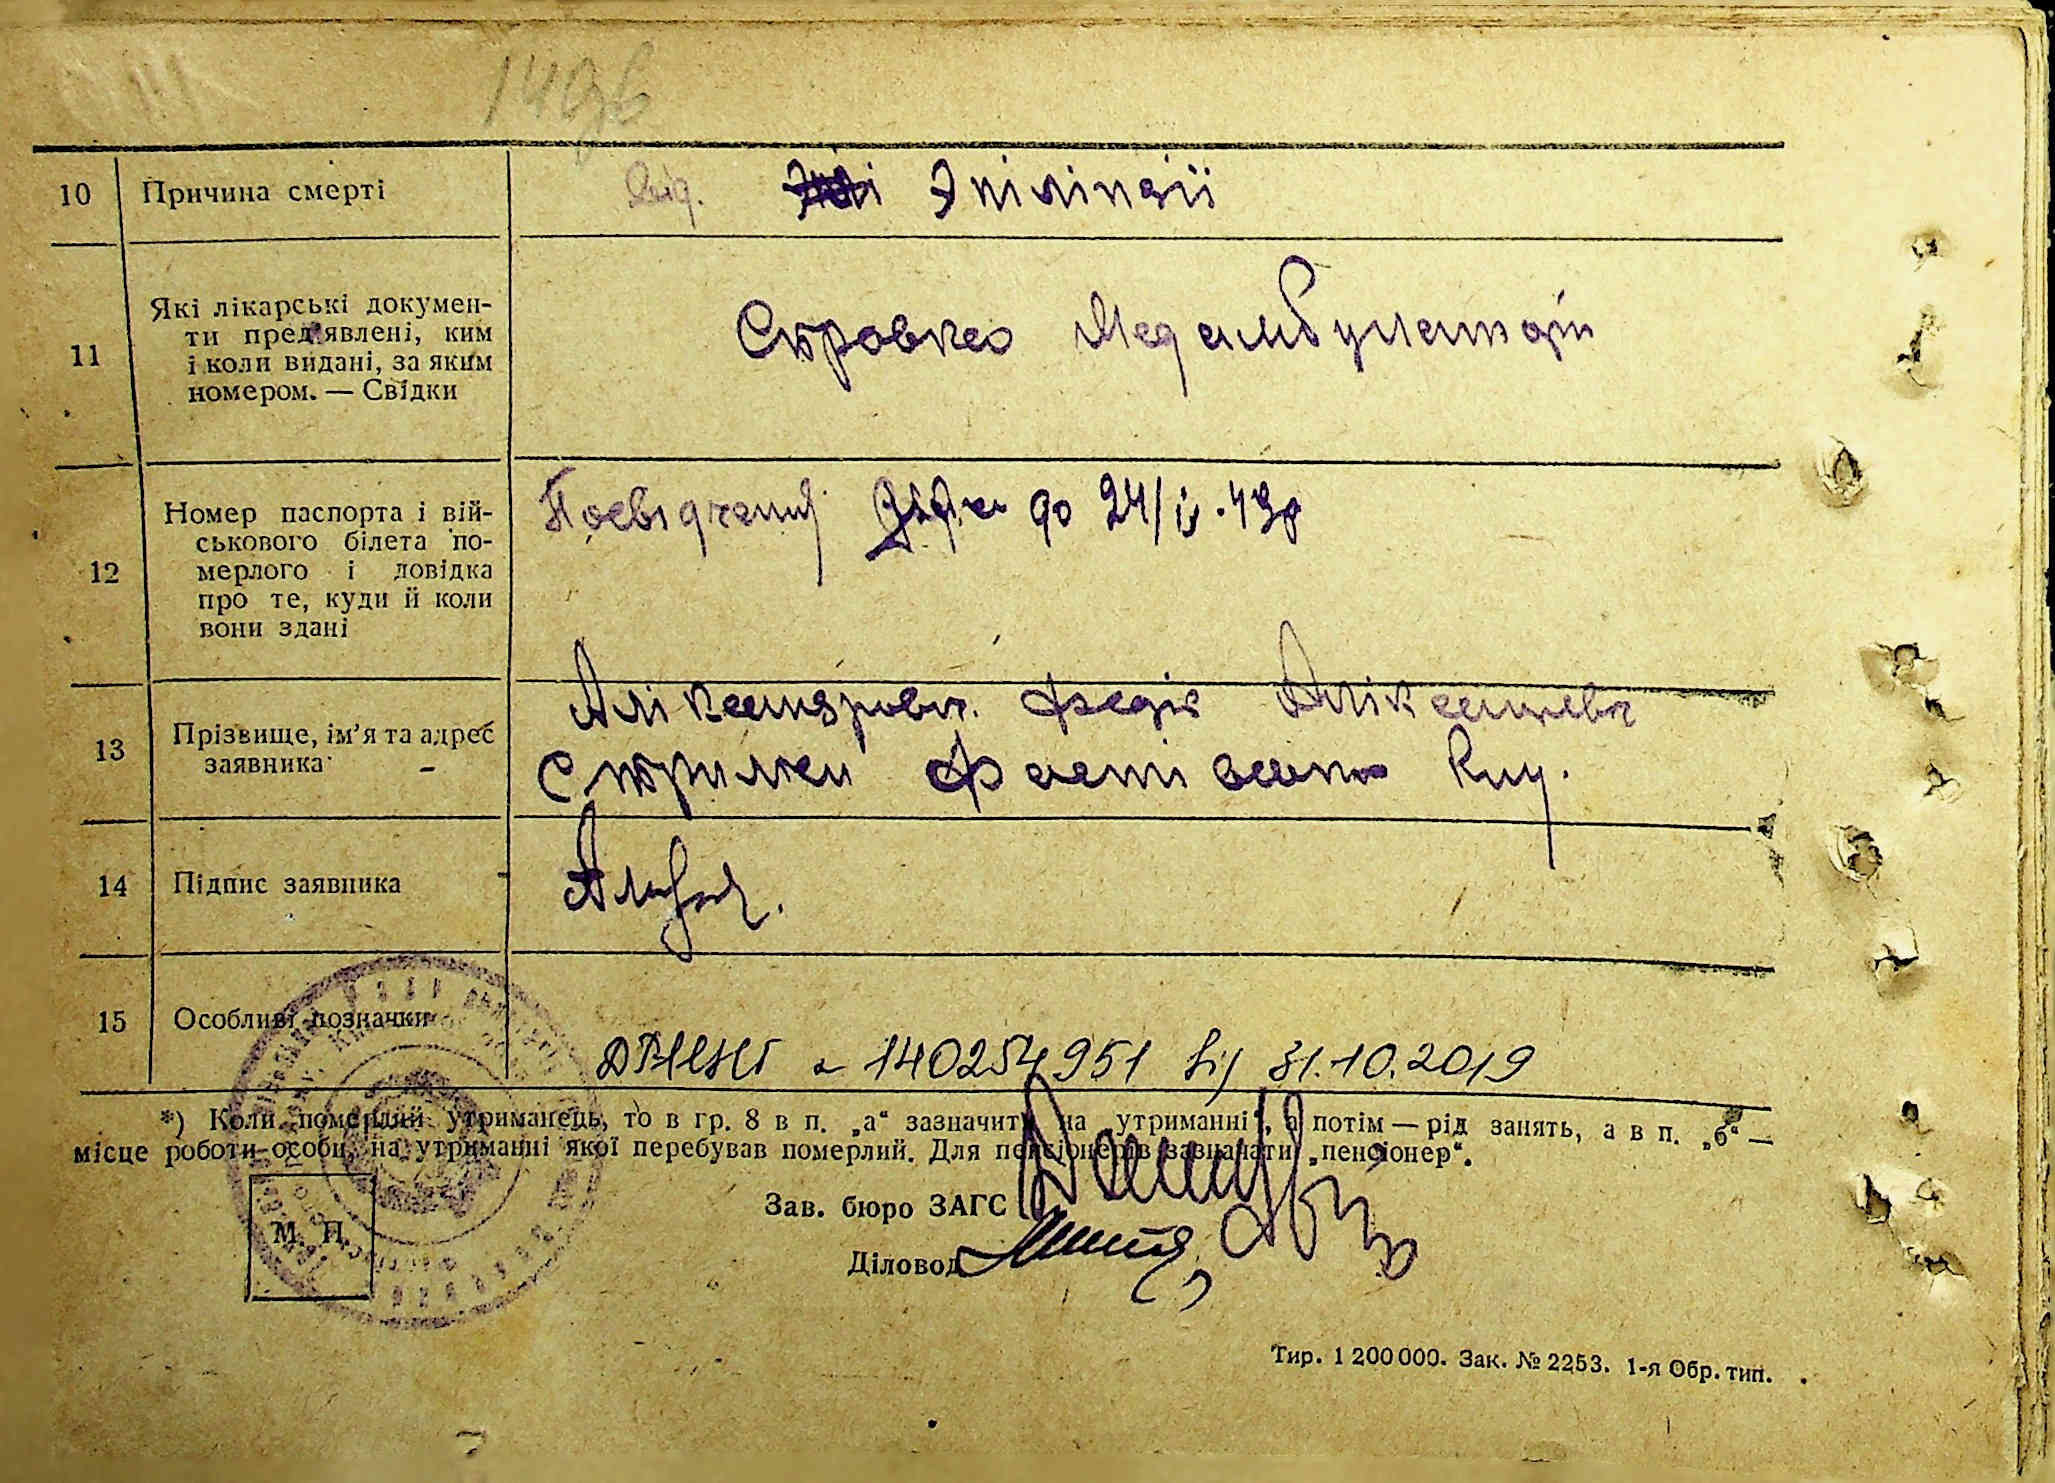 10 Причина смерті Від. Эпіліпзії
11 Які лікарські докумен-
ти пред'явлені, ким
і коли видані, за яким
номером. — Свідки
Справка Медамбулаторії
12 Номер паспорта і вій-
ськового білета по-
мерлого і довідка
про те, куди й коли
вони здані
до 24/ 43р
13 Прізвище, ім'я та адрес
заявника
с Фастівська Киу.
14 Підпис заявника
15 Особливі позначки
140254951 від 31.10.2019
*) Коли померлий утриманець, то в гр. 8 в п. „а“ зазначити на „утриманні“, а потім — рід занять, а в п. „б“ —
місце роботи особи, на утриманні якої перебував померлий. Для пенсіонерів зазначати „пенсіонер“.
М. П.
Зав. бюро ЗАГС
Діловод
Тир. 1 200 000. Зак. № 2253. 1-я Обр. тип.